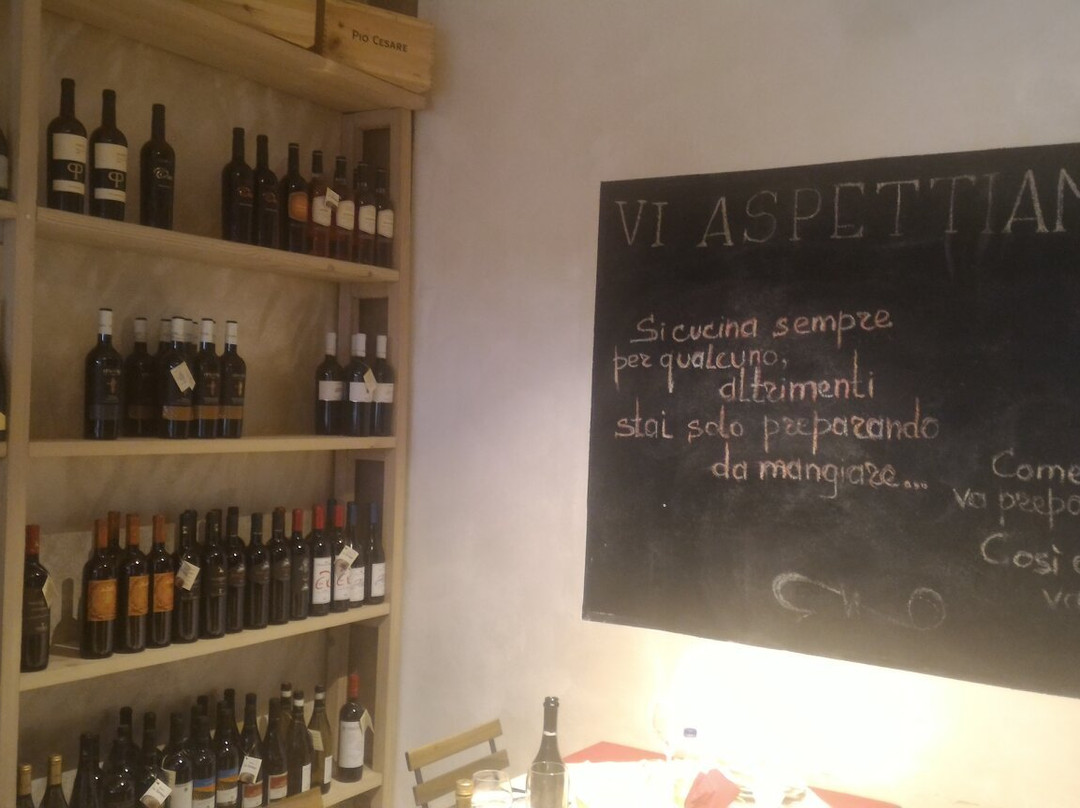 PIO CESARE
VI ASPETTIAN
Si cucina sempre
per qualcuno,
altrimenti
stai solo preparando
da mangiare...
Come
va prepa
Così
va